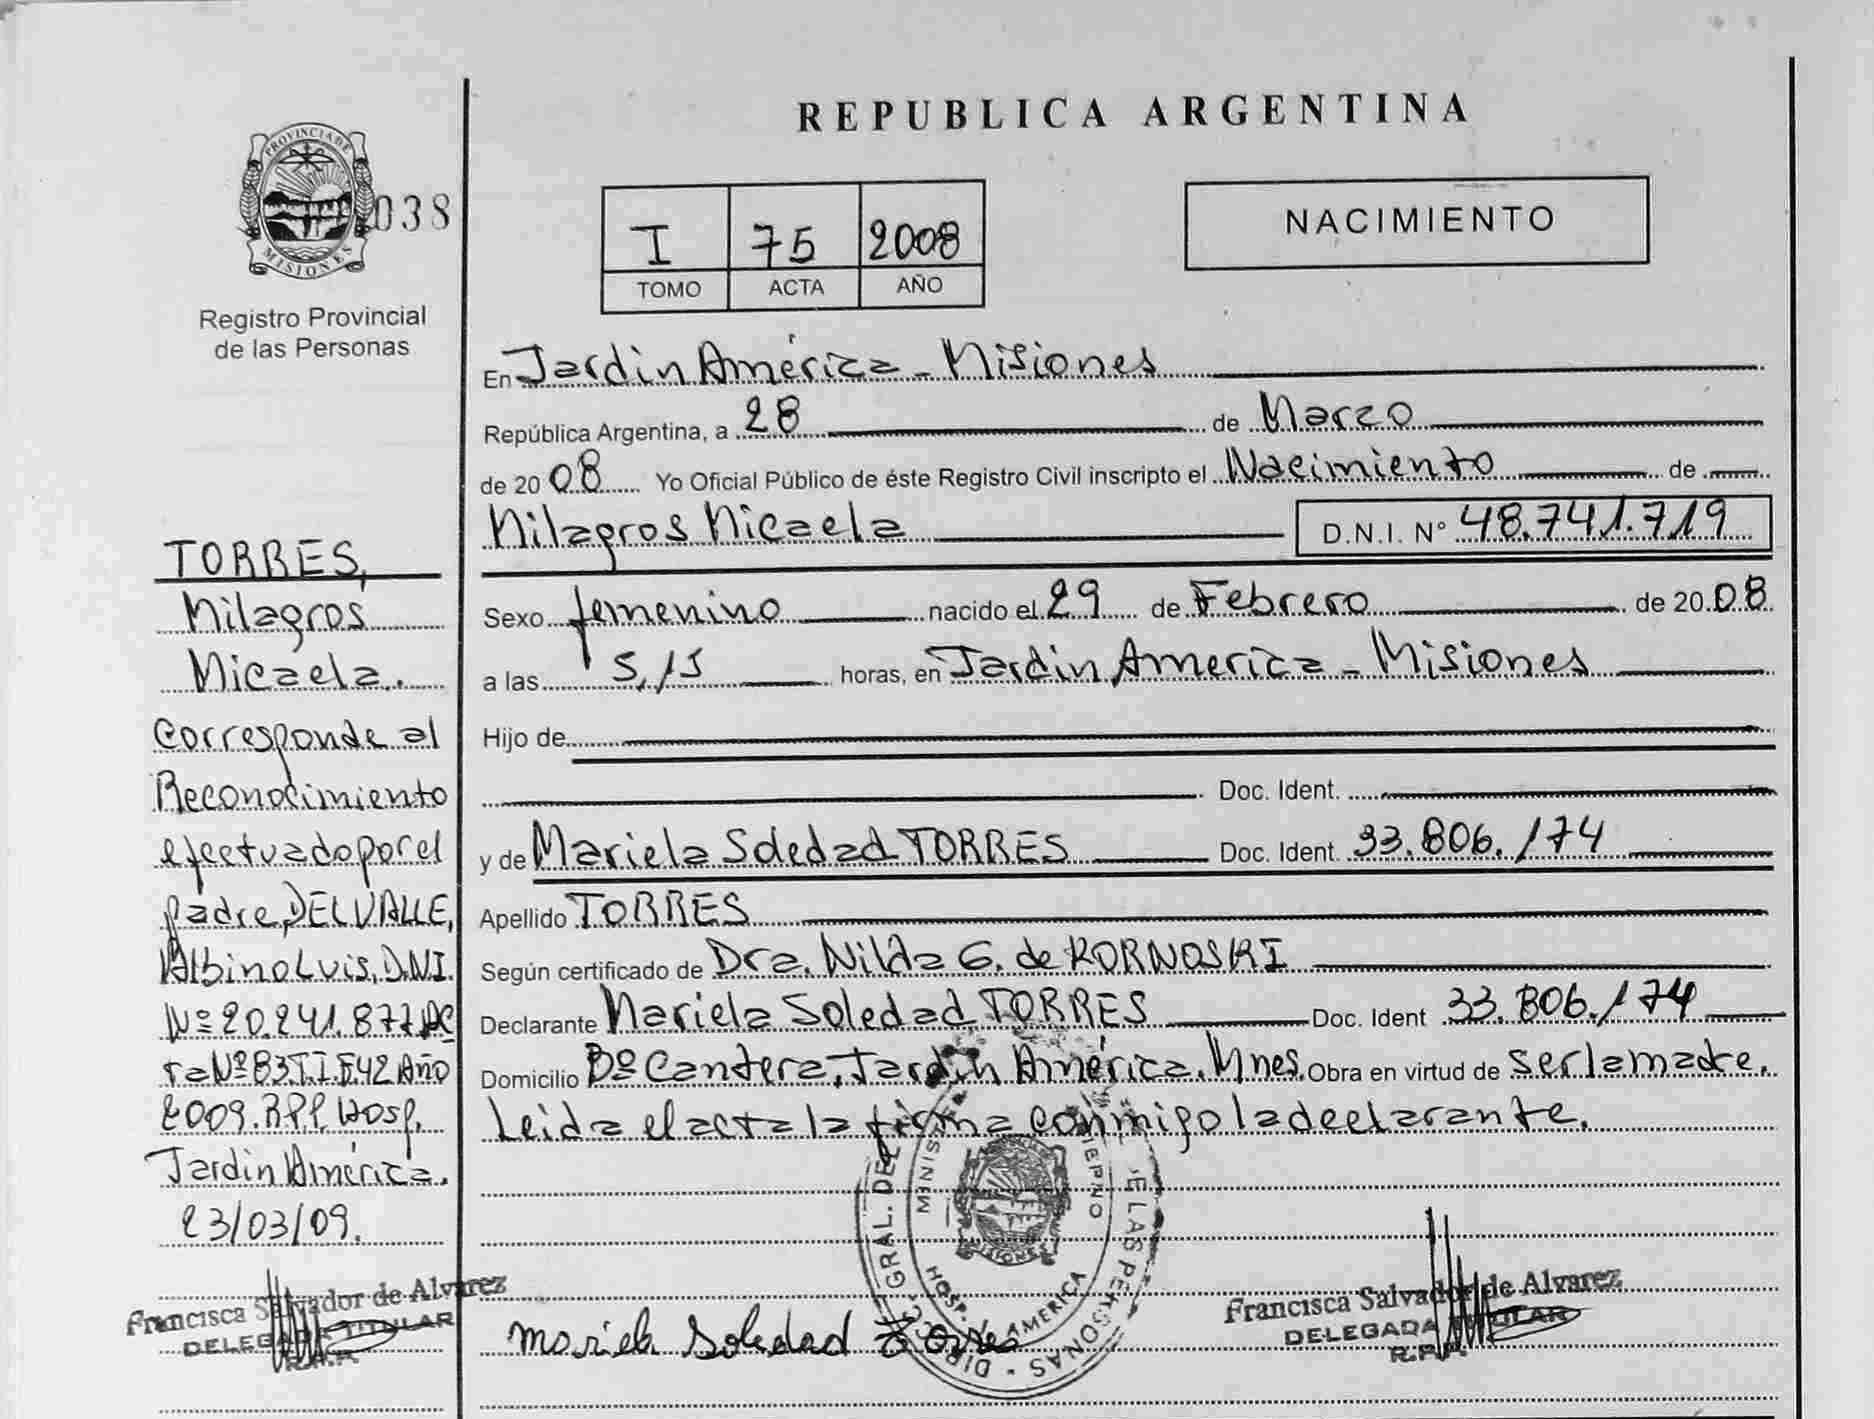 REPUBLICA ARGENTINA
PROVINCIA DE
MISIONES
038
Registro Provincial
de las Personas
I 75 2008
TOMO ACTA AÑO
NACIMIENTO
En Jardin América - Misiones
República Argentina, a 28 de Marzo
de 2008 Yo Oficial Público de éste Registro Civil inscripto el Nacimiento de
Milagros Micaela D.N.I. N° 48.741.719
Sexo femenino nacido el 29 de Febrero de 2008
a las S/S horas, en Jardin America - Misiones
Hijo de
Doc. Ident.
y de Mariela Soledad TORRES Doc. Ident. 33.806.174
Apellido TORRES
Según certificado de Dra. Nilda G. de KORNOSKI
Declarante Mariela Soledad TORRES Doc. Ident 33.806.174
Domicilio Bº Cantera, Jardin América, Mnes. Obra en virtud de ser la madre.
Leida el acta la firma conmigo la declarante.
TORRES,
Milagros
Micaela.
Corresponde al
Reconocimiento
efectuado por el
padre, DEL VALLE,
Albino Luis, D.N.I.
Nº 20.241.877 AC
ta Nº 83 T.I F.42 Año
2009. RPP. Hosp.
Jardin América.
23/03/09.
Francisca Salvador de Alvarez
DELEGADA TITULAR
R.P.P.
Mariela Soledad Torres
GRAL. DE
DE LAS PERSONAS
HOSP. J. AMERICA
MISIONES
Francisca Salvador de Alvarez
DELEGADA TITULAR
R.P.P.